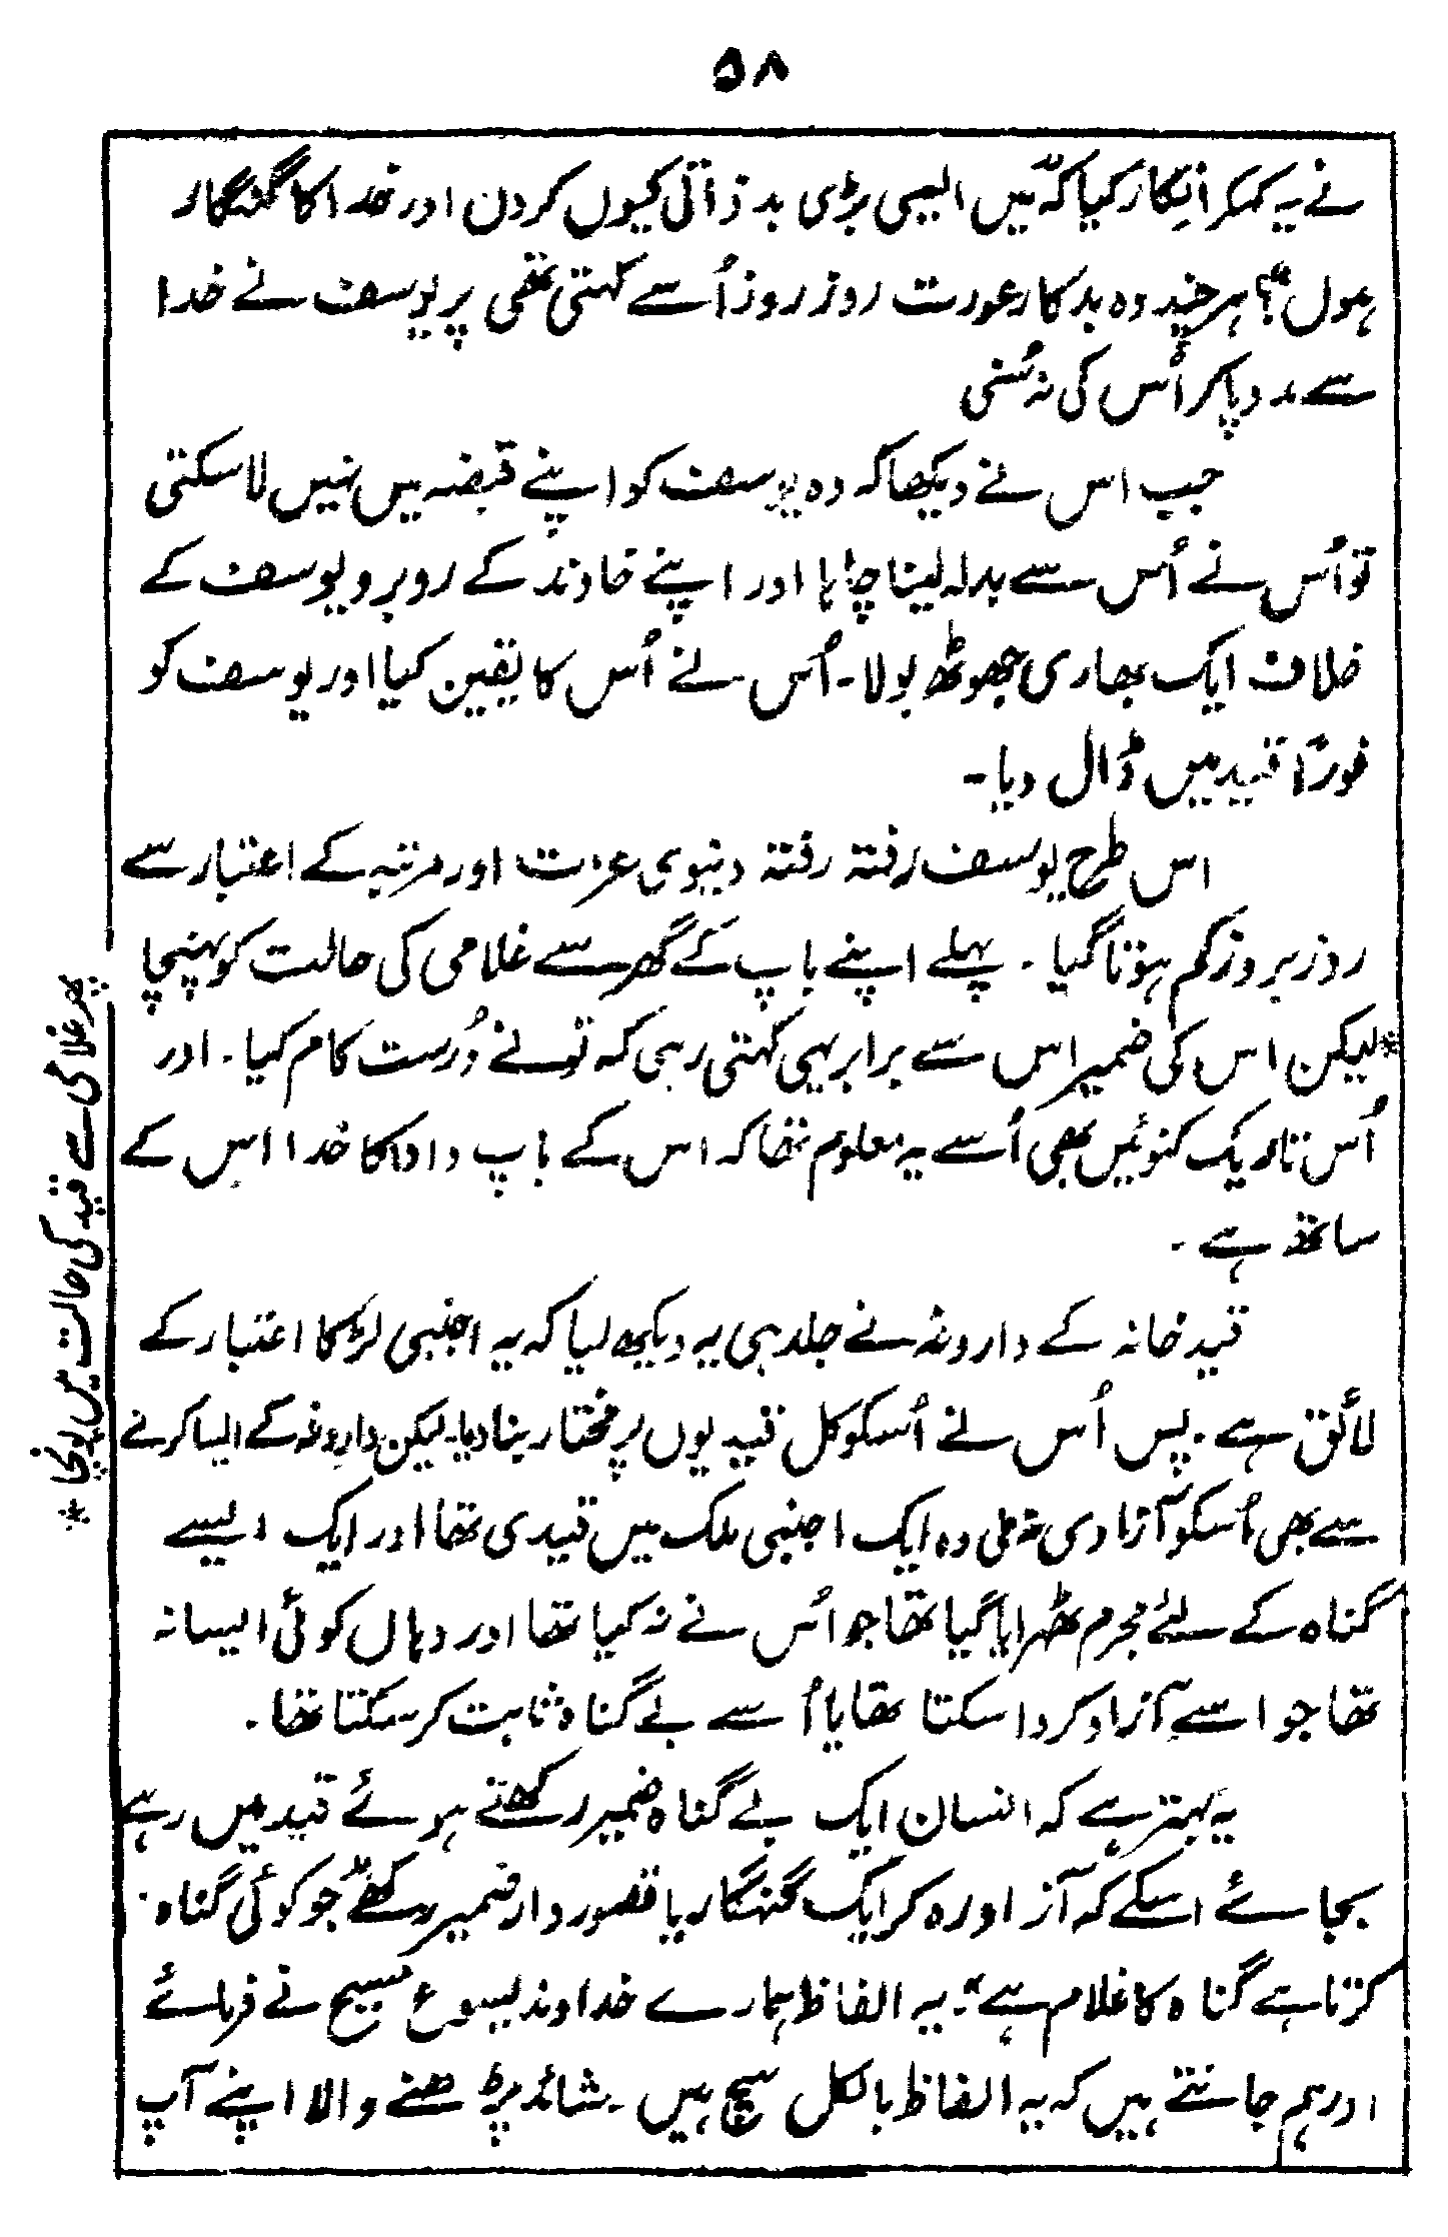 ۵۸
نے یہ کہکر انکار کیا کہ "میں ایسی بڑی بدذاتی کیوں کروں اور خدا کا گنہگار
ہوں"؟ ہر چند وہ بدکار عورت روز روز اُسے کہتی تھی پر یوسف نے خدا
سے مدد پاکر اُس کی نہ سُنی
جب اس نے دیکھا کہ وہ یوسف کو اپنے قبضہ میں نہیں لاسکتی
تو اُس نے اُس سے بدلہ لینا چاہا اور اپنے خاوند کے روبرو یوسف کے
خلاف ایک بھاری جھوٹھ بولا۔ اُس نے اُس کا یقین کیا اور یوسف کو
فوراً قید میں ڈال دیا۔
اس طرح یوسف رفتہ رفتہ دنیوی عزت اور مرتبہ کے اعتبار سے
روز بروز کم ہوتا گیا۔ پہلے اپنے باپ کے گھر سے غلامی کی حالت کو پہنچا
*لیکن اس کی ضمیر اس سے برابر یہی کہتی رہی کہ تونے دُرست کام کیا۔ اور
اُس تاریک کنوئیں بھی اُسے یہ معلوم تھا کہ اس کے باپ دادا کا خدا اس کے
ساتھ ہے۔
قید خانہ کے داروغہ نے جلد ہی یہ دیکھ لیا کہ یہ اجنبی لڑکا اعتبار کے
لائق ہے۔ پس اُس نے اُسکو کل قیدیوں پر مختار بنا دیا۔ لیکن داروغہ کے ایسا کرنے
سے بھی اُسکو آزادی نہ ملی وہ ایک اجنبی ملک میں قیدی تھا اور ایک ایسے
گناہ کے لئے مجرم ٹھہرایا گیا تھا جو اُس نے نہ کیا تھا اور وہاں کوئی ایسا نہ
تھا جو اسے آزاد کروا سکتا تھا یا اُسے بے گناہ ثابت کر سکتا تھا۔
یہ بہتر ہے کہ انسان ایک بے گناہ ضمیر رکھتے ہوئے قید میں رہے
بجائے اسکے کہ آزاد رہ کر ایک گنہگار یا قصوروار ضمیر رکھے "جو کوئی گناہ
کرتا ہے گناہ کا غلام ہے"۔ یہ الفاظ ہمارے خداوند یسوع مسیح نے فرمائے
اور ہم جانتے ہیں کہ یہ الفاظ بالکل سچ ہیں۔ شائد پڑھنے والا اپنے آپ
پھر غلامی سے قید کی حالت میں پہنچا *